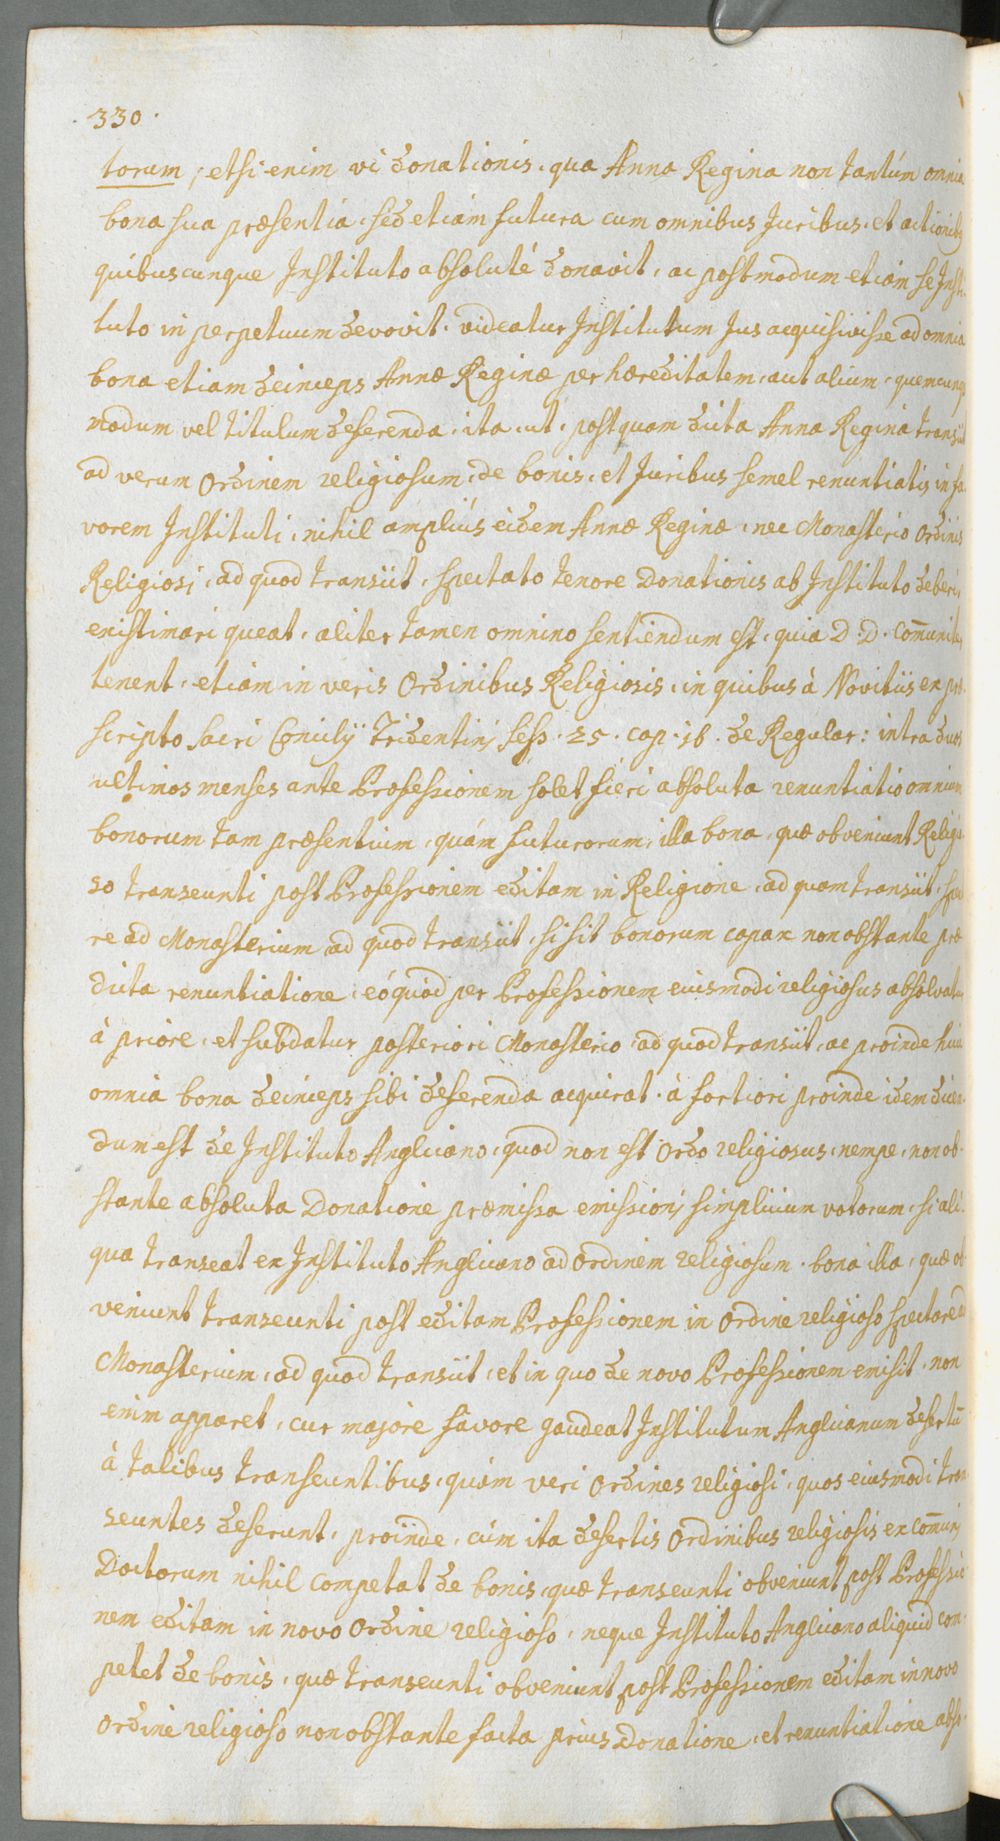 330.
torum, etsi enim vi donationis, qua Anna Regina non tantùm omnia
bona sua præsentia, sed etiam futura cum omnibus Juribus, et actionibus
quibuscunque Instituto absoluté donavit, ac postmodum etiàm se Insti-
tuto in perpetuum devovit, videatur Institutum Jus acquisivisse ad omnia
bona etiam deinceps Annæ Reginæ per hæreditatem, aut alium, quemcunq
modum vel titulum deferenda, ita, ut, postquam dicta Anna Regina transiit
ad verum Ordinem religiosum, de bonis, et Juribus semel renuntiatis in fa-
vorem Instituti, nihil ampliùs eidem Annæ Reginæ, nec Monasterio Ordinis
Religiosi, ad quod transiit, spectato tenore Donationis ab Instituto deberi,
existimari queat, aliter tamen omnino sentiendum est, quia D. D. com̄uniter
tenent, etiàm in veris Ordinibus Religiosis, in quibus à Novitiis ex præ-
scripto sacri Concilij Tridentini sess. 25. cap. 16. de Regular: intra duos
ultimos menses ante Professionem solet fieri absoluta renuntiatio omnium
bonorum tam præsentium, quám futurorum, illa bona, quæ obveniunt Religio
so transeunti post Professionem editam in Religione, ad quam transiit, specta
re ad Monasterium ad quod transiit, si sit bonorum capax non obstante præ
dicta renuntiatione, eó quòd per Professionem eiusmodi religiosus absolvatur
à priore, et subdatur posteriori Monasterio, ad quod transiit, ac proinde huic
omnia bona deinceps sibi deferenda acquirat. à fortiori proinde idem dicen-
dum est de Instituto Anglicano, quod non est Ordo religiosus, nempe, non ob-
stante absoluta Donatione præmissa emissioni simplicium votorum, si ali-
qua transeat ex Instituto Anglicano ad ordinem religiosum, bona illa, quæ ob-
veniunt transeunti post editam Professionem in ordine religioso spectare ad
Monasterium, ad quod transiit, et in quo de novo Professionem emisit, non
enim apparet, cur majore favore gaudeat Institutum Anglicanum desertū
à talibus transeuntibus, quàm veri Ordines religiosi, quos eiusmodi tran
seuntes deserunt, proinde, cúm ita desertis Ordinibus religiosis ex com̄uni
Doctorum nihil competat de bonis, quæ transeunti obveniunt post Professio
nem editam in novo Ordine religioso, neque Instituto Anglicano aliquid com-
petet de bonis, quæ transeunti obveniunt post Professionem editam in novo
Ordine religioso non obstante facta priùs Donatione, et renuntiatione abso-